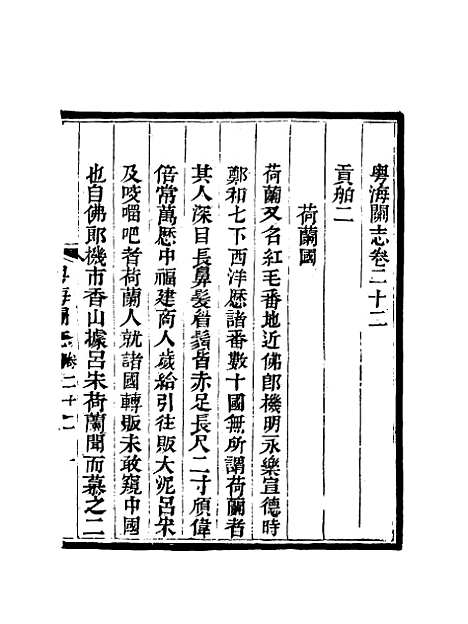 粵海關志卷二十二
貢舶二
荷蘭國
荷蘭又名紅毛番地近佛郎機明永樂宣德時
鄭和七下西洋歷諸番數十國無所謂荷蘭者
其人深目長鼻髮眉鬚皆赤足長尺二寸頎偉
倍常萬歷中福建商人歲給引往販大泥呂宋
及咬𠺕吧者荷蘭人就諸國轉販未敢窺中國
也自佛郎機市香山據呂宋荷蘭聞而慕之二
粵海關志卷二十二 一